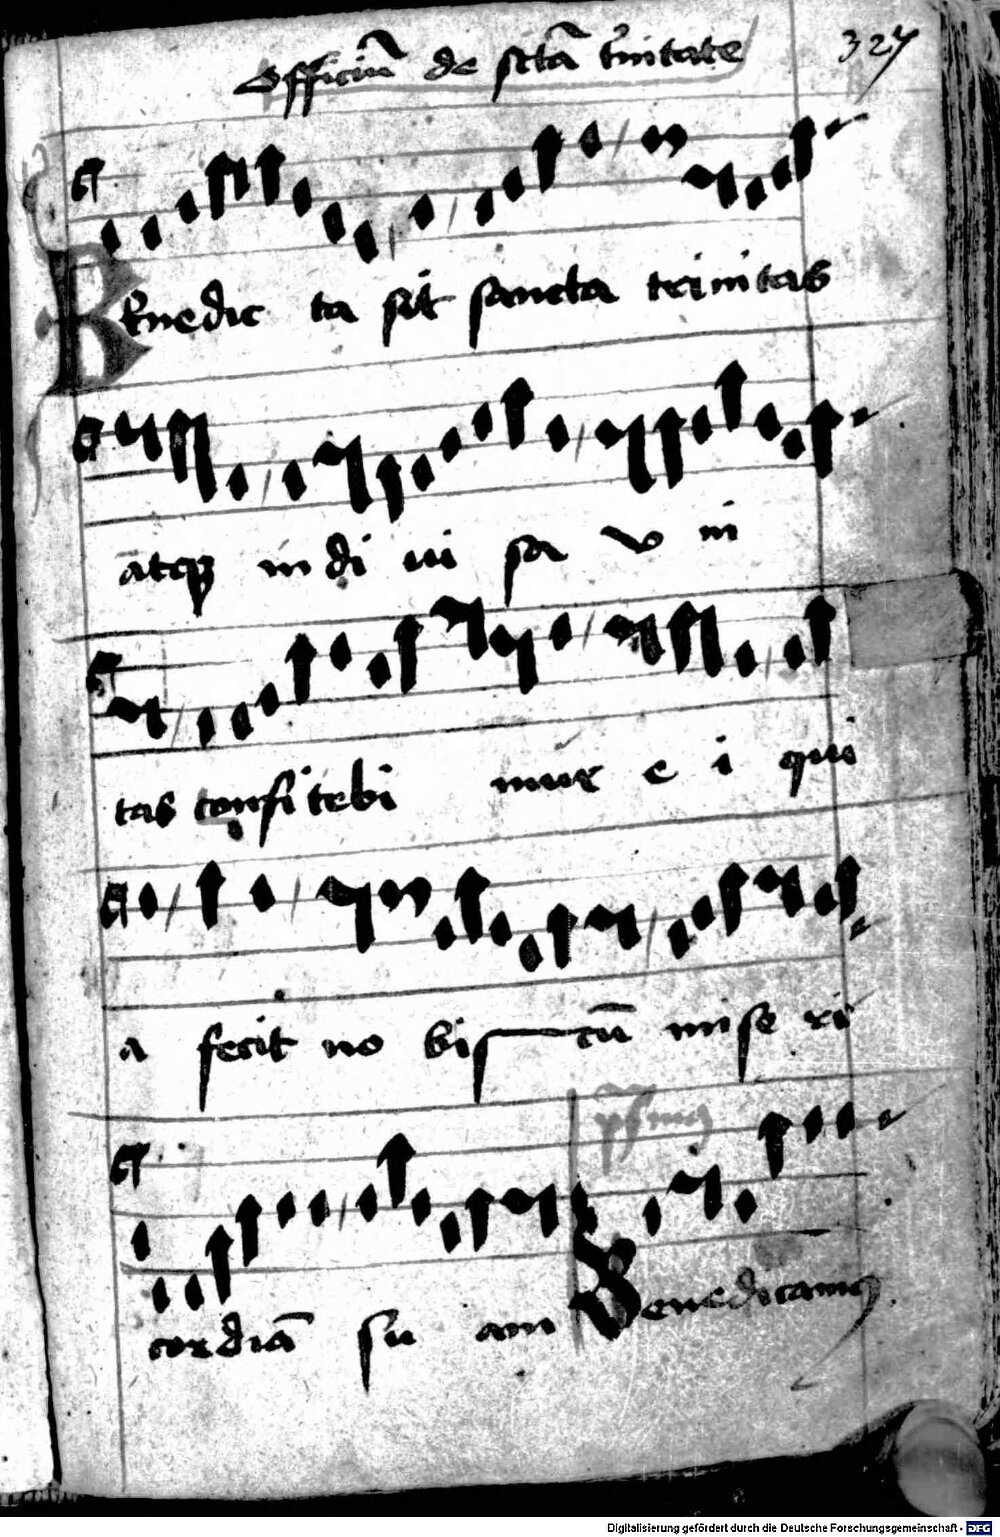 Officiũ de sctã t'nitate
327
Benedic ta sit sancta trinitas
atqꝫ in di ui sa v ni
tas confitebi mur e i qui
a fecit no bis cũ mise ri
psalmus
cordiã su am Benedicamꝰ
Digitalisierung gefördert durch die Deutsche Forschungsgemeinschaft - DFG